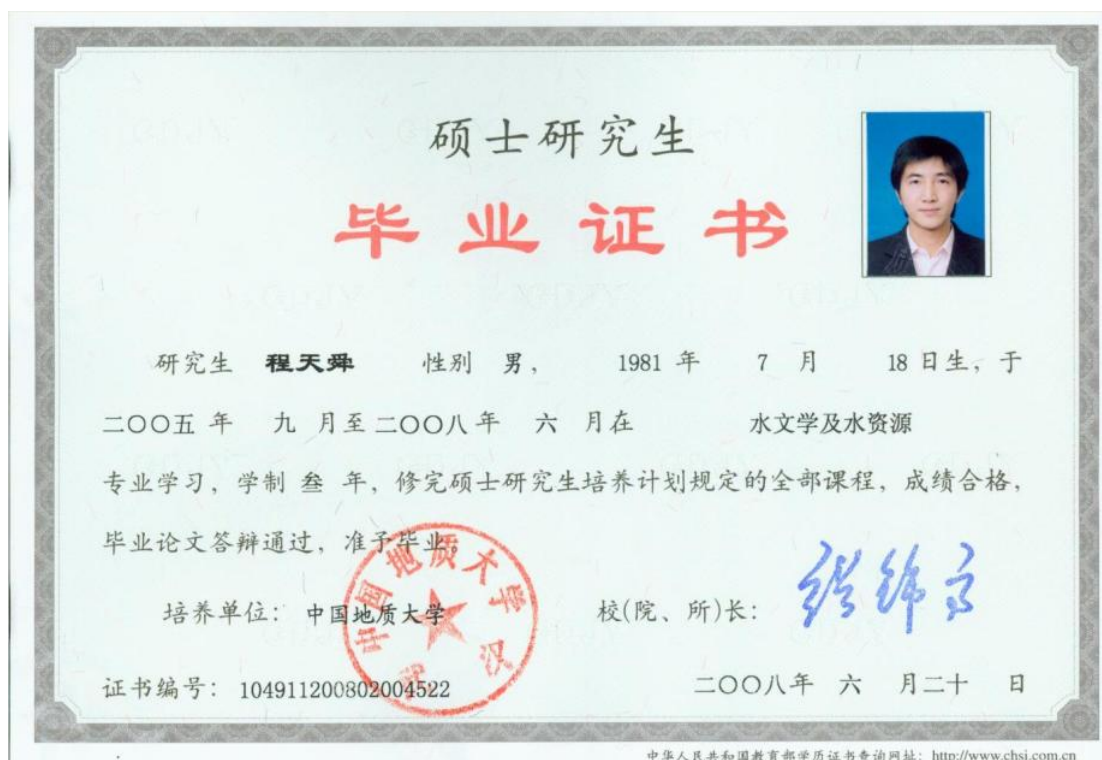 硕士研究生
毕业证书
研究生 程天舜 性别 男， 1981 年 7 月 18 日生，于
二〇〇五 年 九 月至 二〇〇八 年 六 月在 水文学及水资源
专业学习，学制 叁 年，修完硕士研究生培养计划规定的全部课程，成绩合格，
毕业论文答辩通过，准予毕业。
培养单位：中国地质大学 校(院、所)长：
中国地质大学
武汉
证书编号：104911200802004522 二〇〇八年 六 月二十 日
中华人民共和国教育部学历证书查询网址：http://www.chsi.com.cn